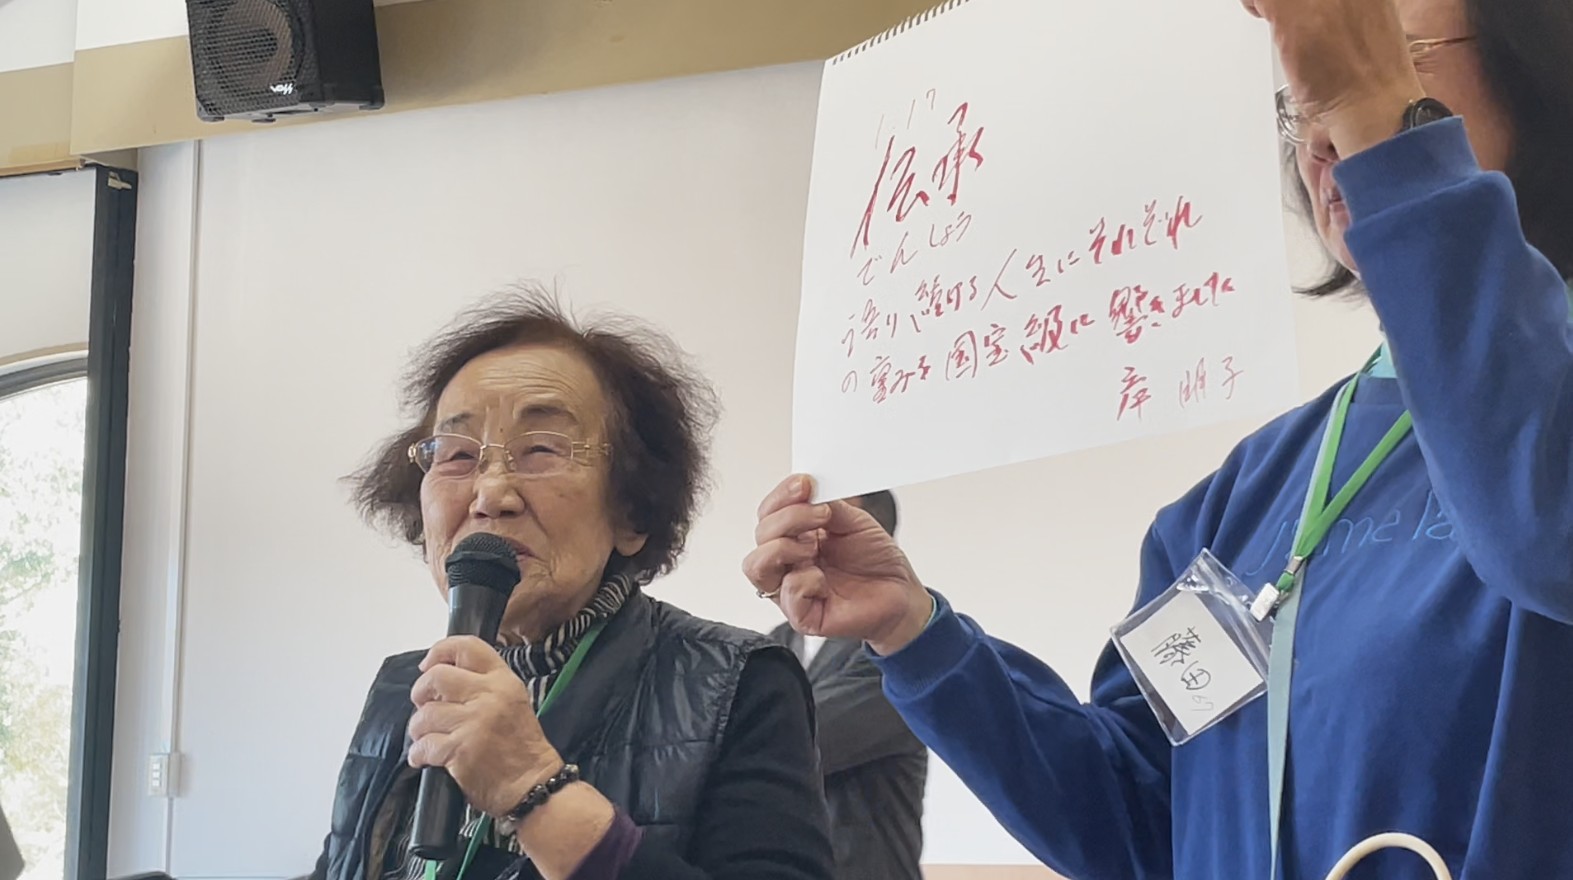 1.17
伝承
でんしょう
語り続ける人生にそれぞれ
の重みを国宝級に響きました
岸 明子
藤田
67